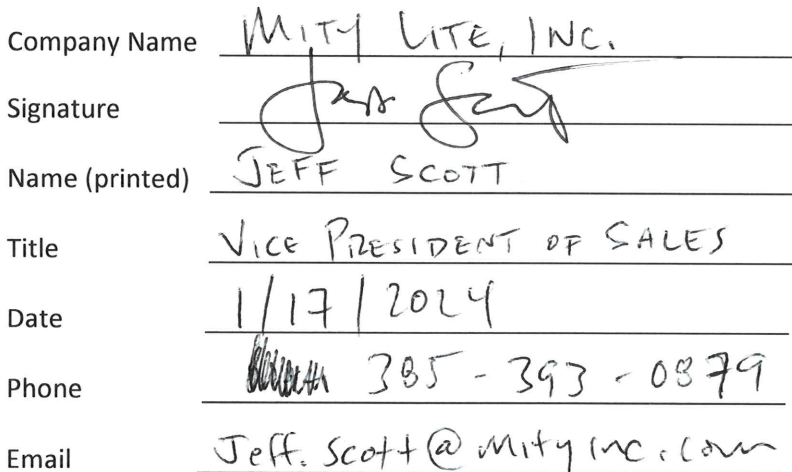 Company Name MITY LITE, INC.
Signature Jeff Scott
Name (printed) JEFF SCOTT
Title VICE PRESIDENT OF SALES
Date 1/17/2024
Phone 385-393-0879
Email Jeff.Scott@mityinc.com